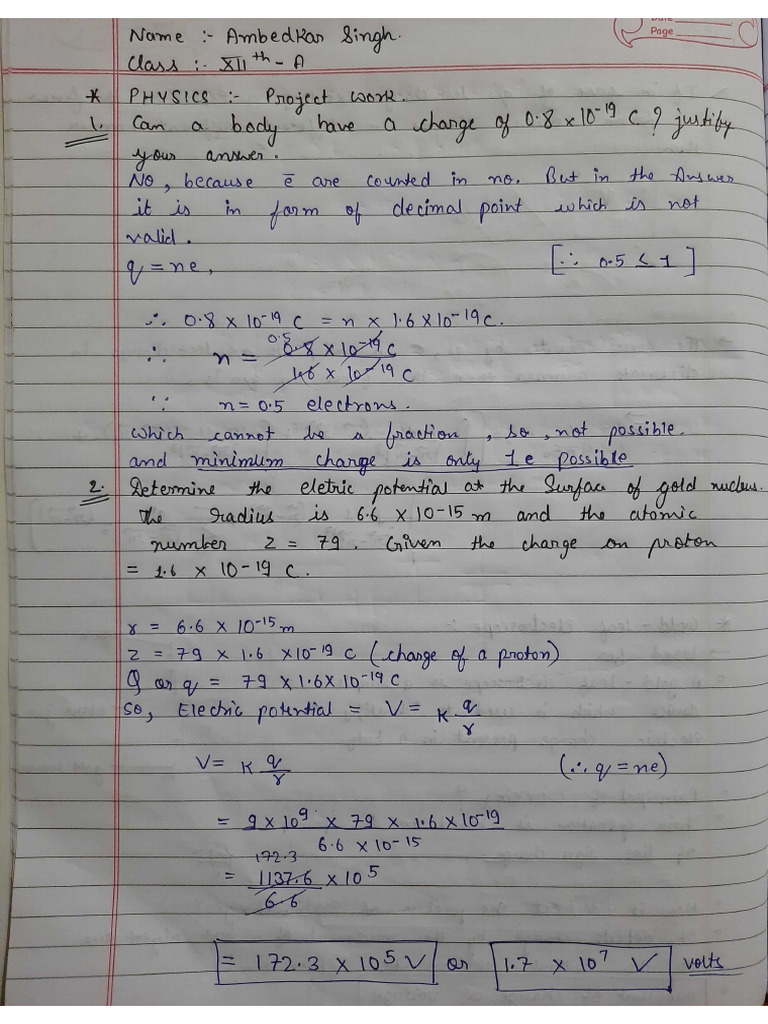 Date
Page
Name :- Ambedkar Singh.
Class :- XIIth - A
* PHYSICS :- Project work.
1. Can a body have a charge of 0.8 x 10-19 C ? justify
your answer.
No, because ē are counted in no. But in the Answer
it is in form of decimal point which is not
valid.
q = ne, [∵ 0.5 ≤ 1]
∴ 0.8 x 10-19 C = n x 1.6 x 10-19 C.
0.5
∴ n = 0.8 x 10-19 C
1.6 x 10-19 C
∵ n = 0.5 electrons.
which cannot be a fraction, so, not possible.
and minimum charge is only 1e possible
2. Determine the eletric potential at the Surface of gold nucleus.
The radius is 6.6 x 10-15 m and the atomic
number Z = 79. Given the charge on proton
= 1.6 x 10-19 C.
r = 6.6 x 10-15 m
Z = 79 x 1.6 x 10-19 C (charge of a proton)
Q or q = 79 x 1.6 x 10-19 C
So, Electric potential = V = K q
r
V = K q (∴ q = ne)
r
= 9 x 10 9 x 79 x 1.6 x 10-19
6.6 x 10-15
172.3
= 1137.6 x 10 5
6.6
= 172.3 x 10 5 V or 1.7 x 10 7 V volts